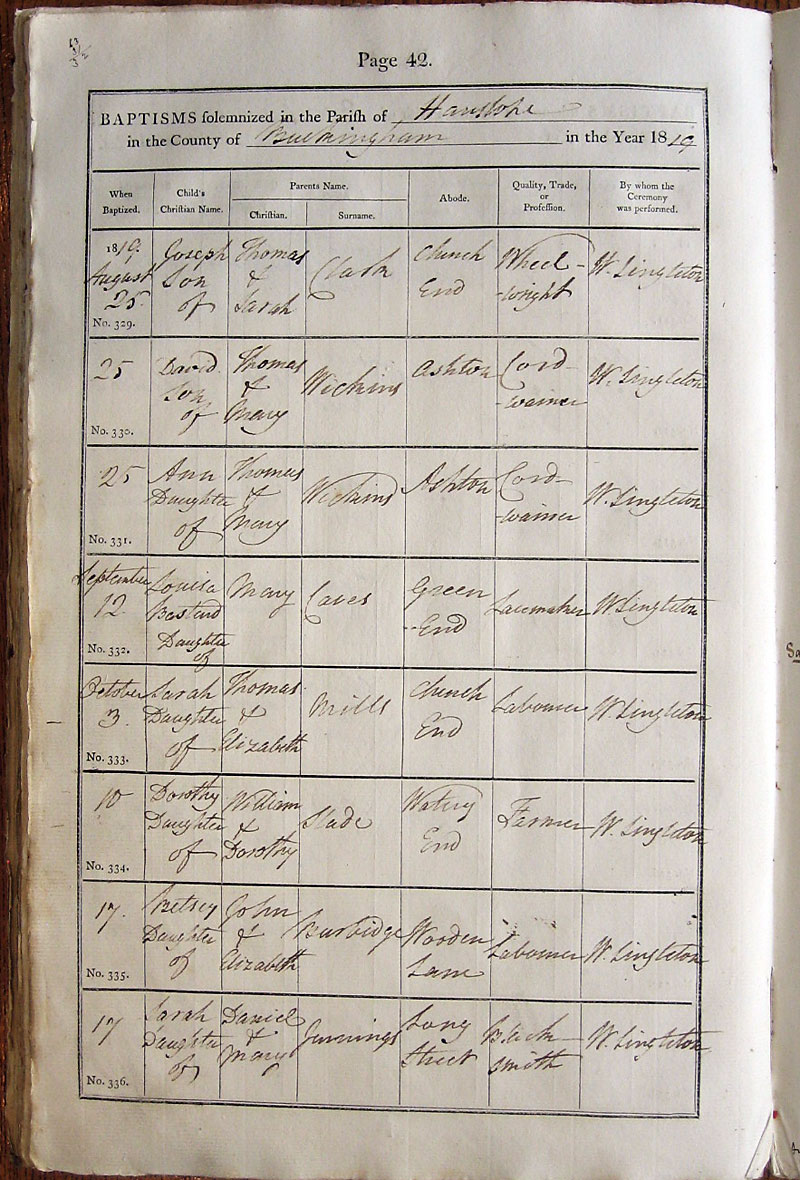 Page 42.
BAPTISMS solemnized in the Parish of Hanslope
in the County of Buckingham in the Year 1819
When Baptized.
Child's Christian Name.
Parents Name.
Christian.
Surname.
Abode.
Quality, Trade, or Profession.
By whom the Ceremony was performed.
1819.
August
25.
No. 329.
Joseph
Son
of
Thomas
&
Sarah
Clark
Church
End
Wheel-
-wright
W. Singleton
25
No. 330.
David
Son
of
Thomas
&
Mary
Wickins
Ashton
Cord-
-wainer
W. Singleton
25
No. 331.
Ann
Daughter
of
Thomas
&
Mary
Wickins
Ashton
Cord-
-wainer
W. Singleton
September
12
No. 332.
Louisa
Bastard
Daughter
of
Mary
Caves
Green
-End
Lacemaker
W. Singleton
October
3.
No. 333.
Sarah
Daughter
of
Thomas
&
Elizabeth
Mills
Church
End
Labourer
W. Singleton
10
No. 334.
Dorothy
Daughter
of
William
&
Dorothy
Slade
Watery
End
Farmer
W. Singleton
17.
No. 335.
Betsey
Daughter
of
John
&
Elizabeth
Burbidge
Wooden
Lane
Labourer
W. Singleton
17
No. 336.
Sarah
Daughter
of
Daniel
&
Mary
Jennings
Long
Street
Black
smith
W. Singleton